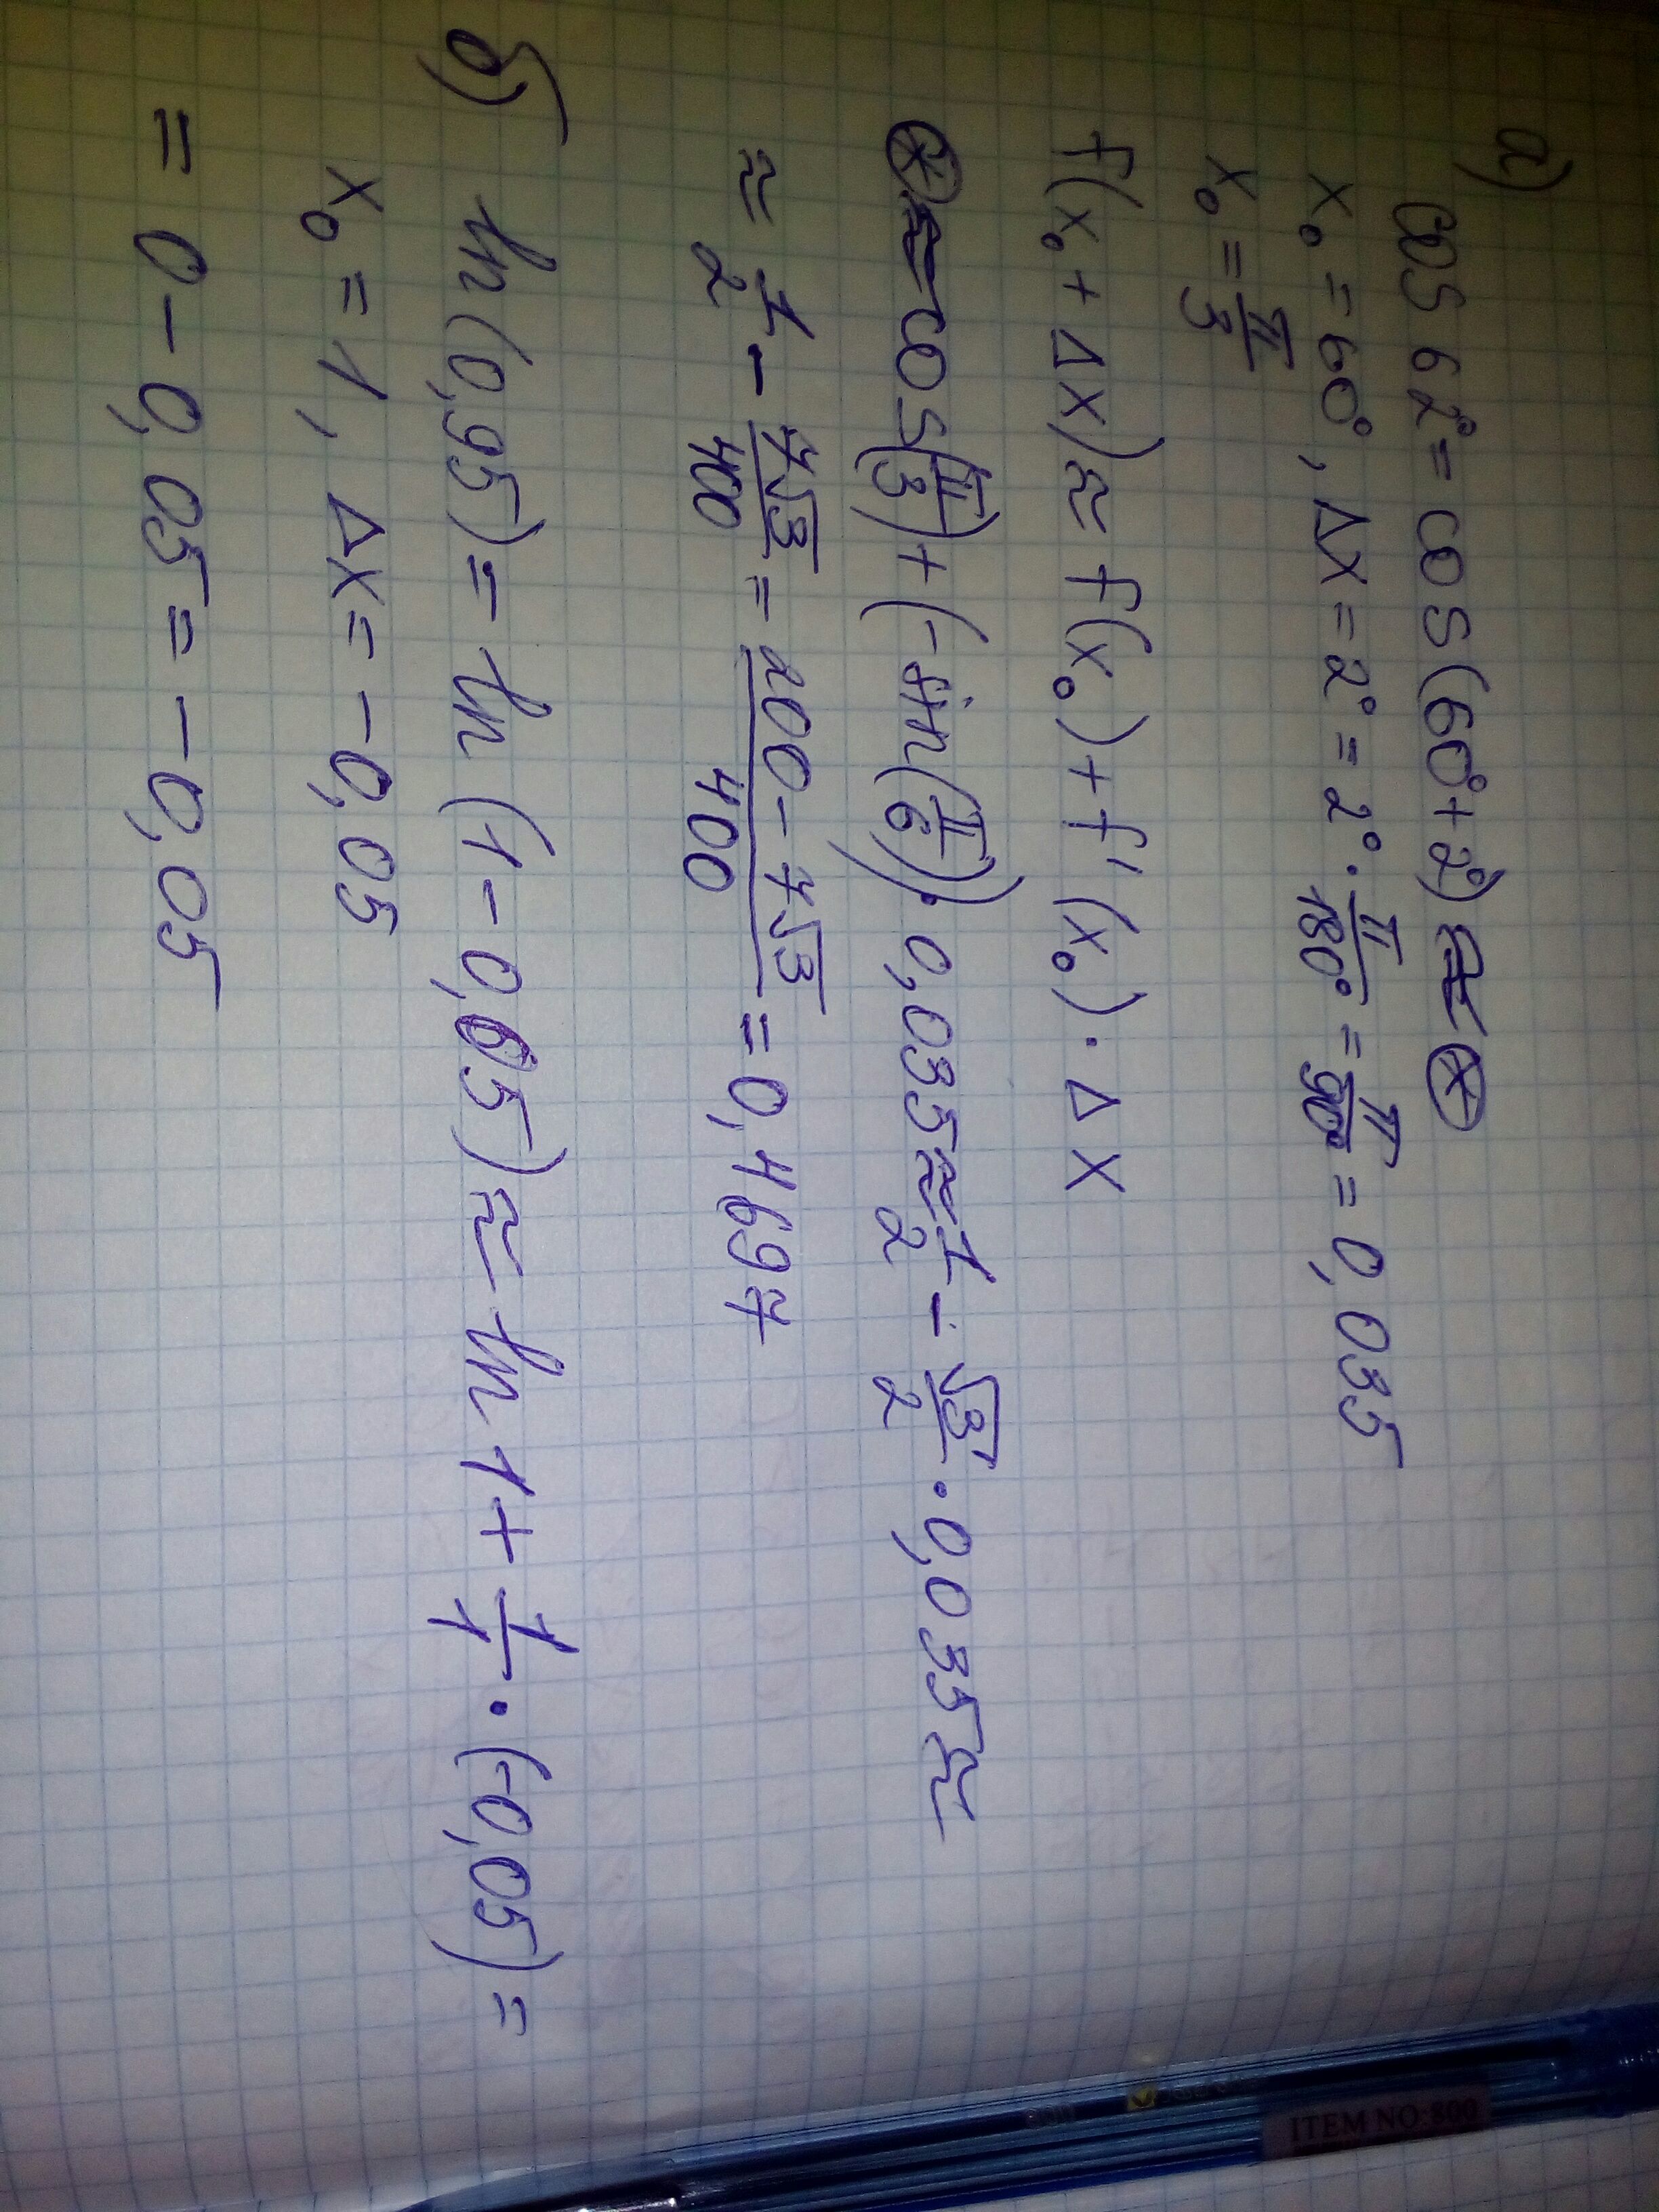 а) cos 62° = cos(60°+2°) ≈ ⊛
x₀ = 60°, Δx = 2° = 2° · π/180° = π/90 = 0,035
x₀ = π/3
f(x₀ + Δx) ≈ f(x₀) + f'(x₀) · Δx
⊛ ≈ cos(π/3) + (-sin(π/6)) · 0,035 ≈ 1/2 - √3/2 · 0,035 ≈
≈ 1/2 - 7√3/400 = (200 - 7√3)/400 = 0,4697
б) ln(0,95) = ln(1 - 0,05) ≈ ln 1 + 1/1 · (-0,05) =
x₀ = 1, Δx = -0,05
= 0 - 0,05 = -0,05
ITEM NO:800